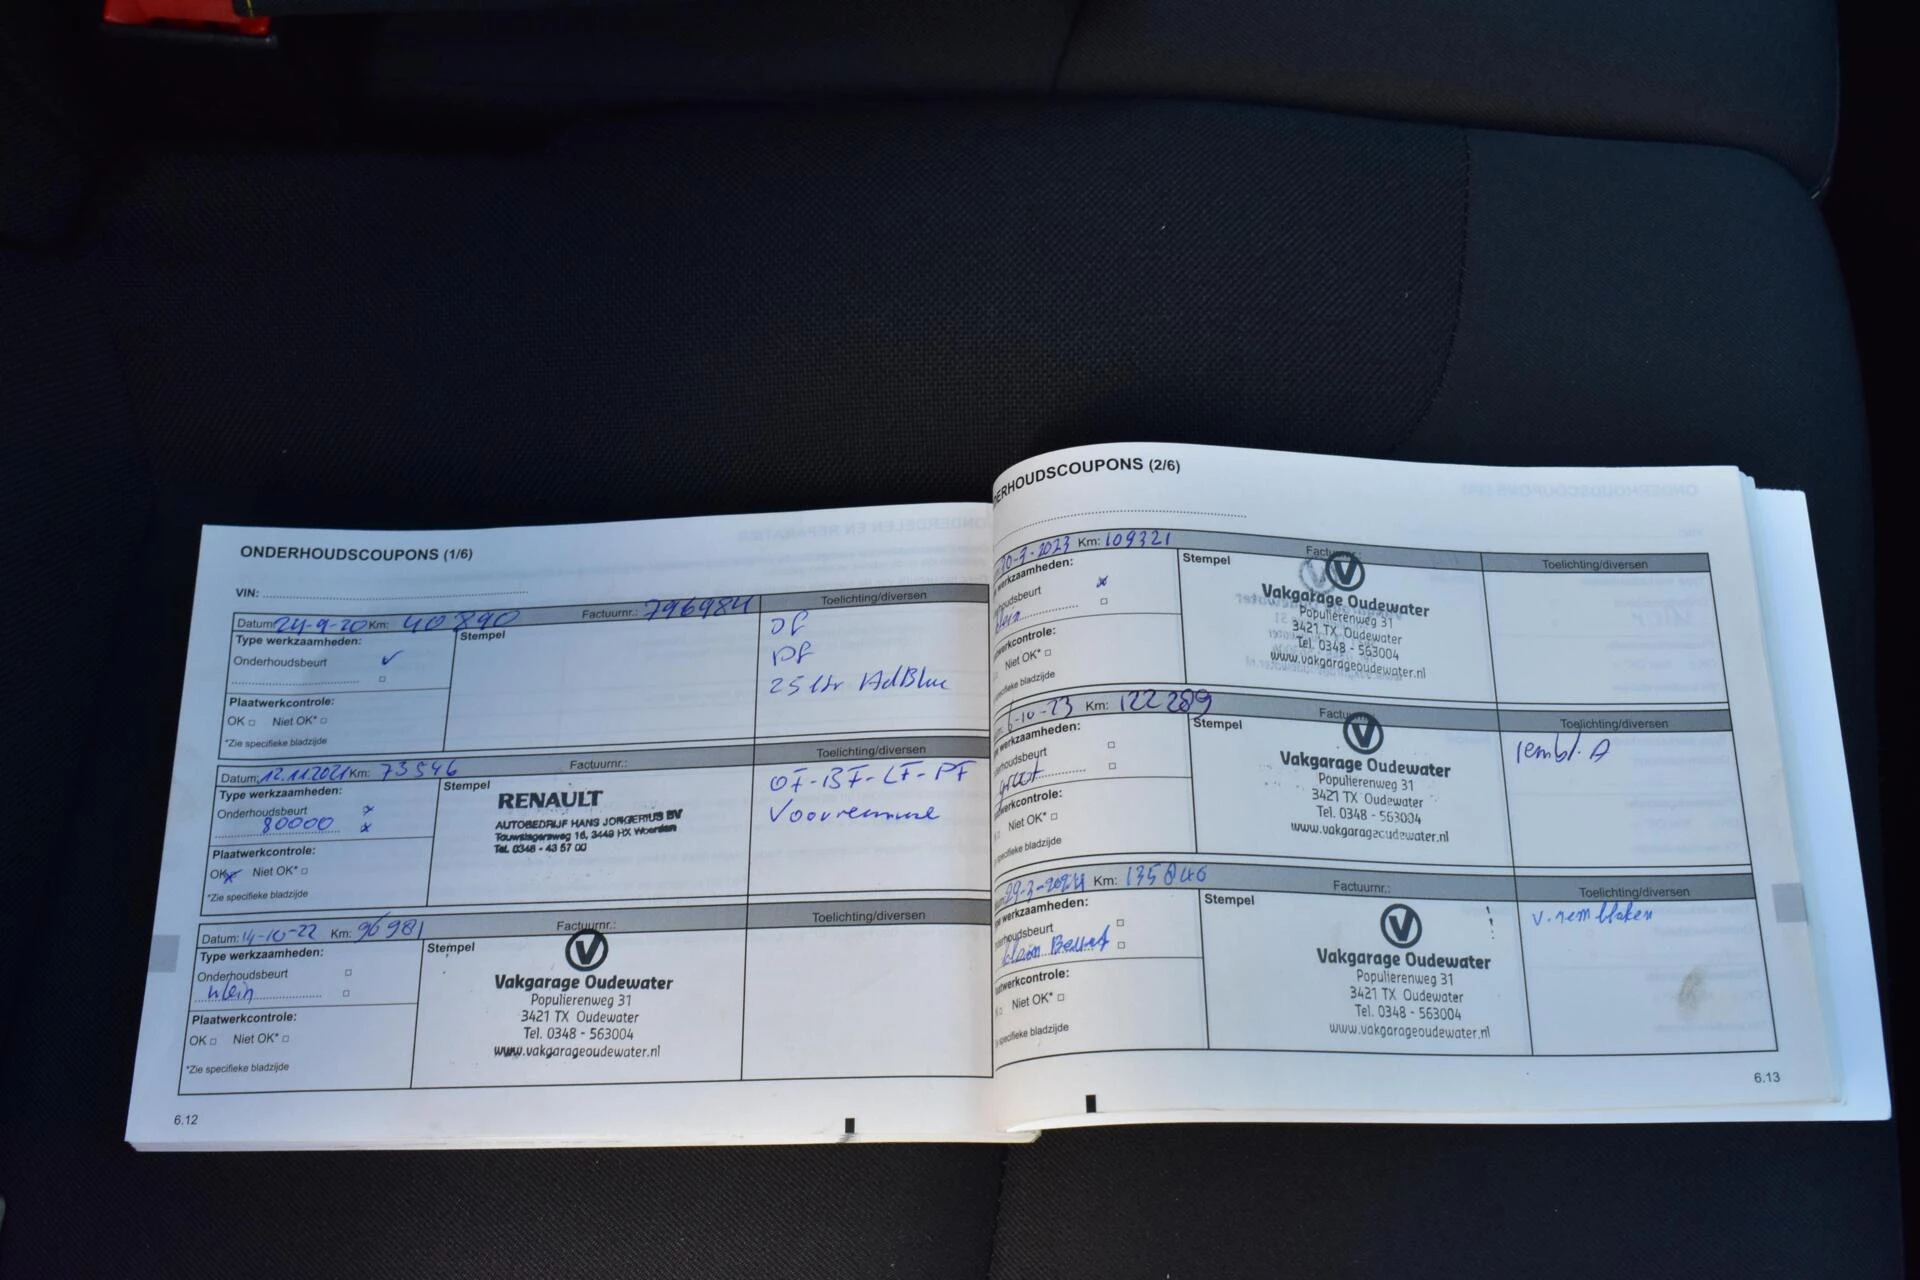 ONDERHOUDSCOUPONS (1/6)
VIN:
Datum: 24-9-20 Km: 40890 Factuurnr.: 796984 Toelichting/diversen
Type werkzaamheden:
Onderhoudsbeurt
Plaatwerkcontrole:
OK Niet OK*
*Zie specifieke bladzijde
Stempel
25 ltr AdBlue
Datum: 12.11.2021 Km: 73546 Factuurnr.: Toelichting/diversen
Type werkzaamheden:
Onderhoudsbeurt
80000
Plaatwerkcontrole:
OK Niet OK*
*Zie specifieke bladzijde
Stempel
RENAULT
AUTOBEDRIJF HANS JONGERIUS BV
Touwslagersweg 16, 3449 HX Woerden
Tel. 0348 - 43 57 00
OF-BF-LF-PF
Datum: 14-10-22 Km: 96981 Factuurnr.: Toelichting/diversen
Type werkzaamheden:
Onderhoudsbeurt
klein
Plaatwerkcontrole:
OK Niet OK*
*Zie specifieke bladzijde
Stempel
Vakgarage Oudewater
Populierenweg 31
3421 TX Oudewater
Tel. 0348 - 563004
www.vakgarageoudewater.nl
6.12
ERHOUDSCOUPONS (2/6)
Km: 109321 Factuurnr.: Toelichting/diversen
werkzaamheden:
rhoudsbeurt
klein
werkcontrole:
Niet OK*
specifieke bladzijde
Stempel
Vakgarage Oudewater
Populierenweg 31
3421 TX Oudewater
Tel. 0348 - 563004
www.vakgarageoudewater.nl
6-10-23 Km: 122289 Factuurnr. Toelichting/diversen
werkzaamheden:
rhoudsbeurt
groot
werkcontrole:
Niet OK*
specifieke bladzijde
Stempel
Vakgarage Oudewater
Populierenweg 31
3421 TX Oudewater
Tel. 0348 - 563004
www.vakgarageoudewater.nl
rembl. A
29-3-2024 Km: 135846 Factuurnr.: Toelichting/diversen
werkzaamheden:
derhoudsbeurt
klein Beurt
aatwerkcontrole:
Niet OK*
specifieke bladzijde
Stempel
Vakgarage Oudewater
Populierenweg 31
3421 TX Oudewater
Tel. 0348 - 563004
www.vakgarageoudewater.nl
v. remblokken
6.13